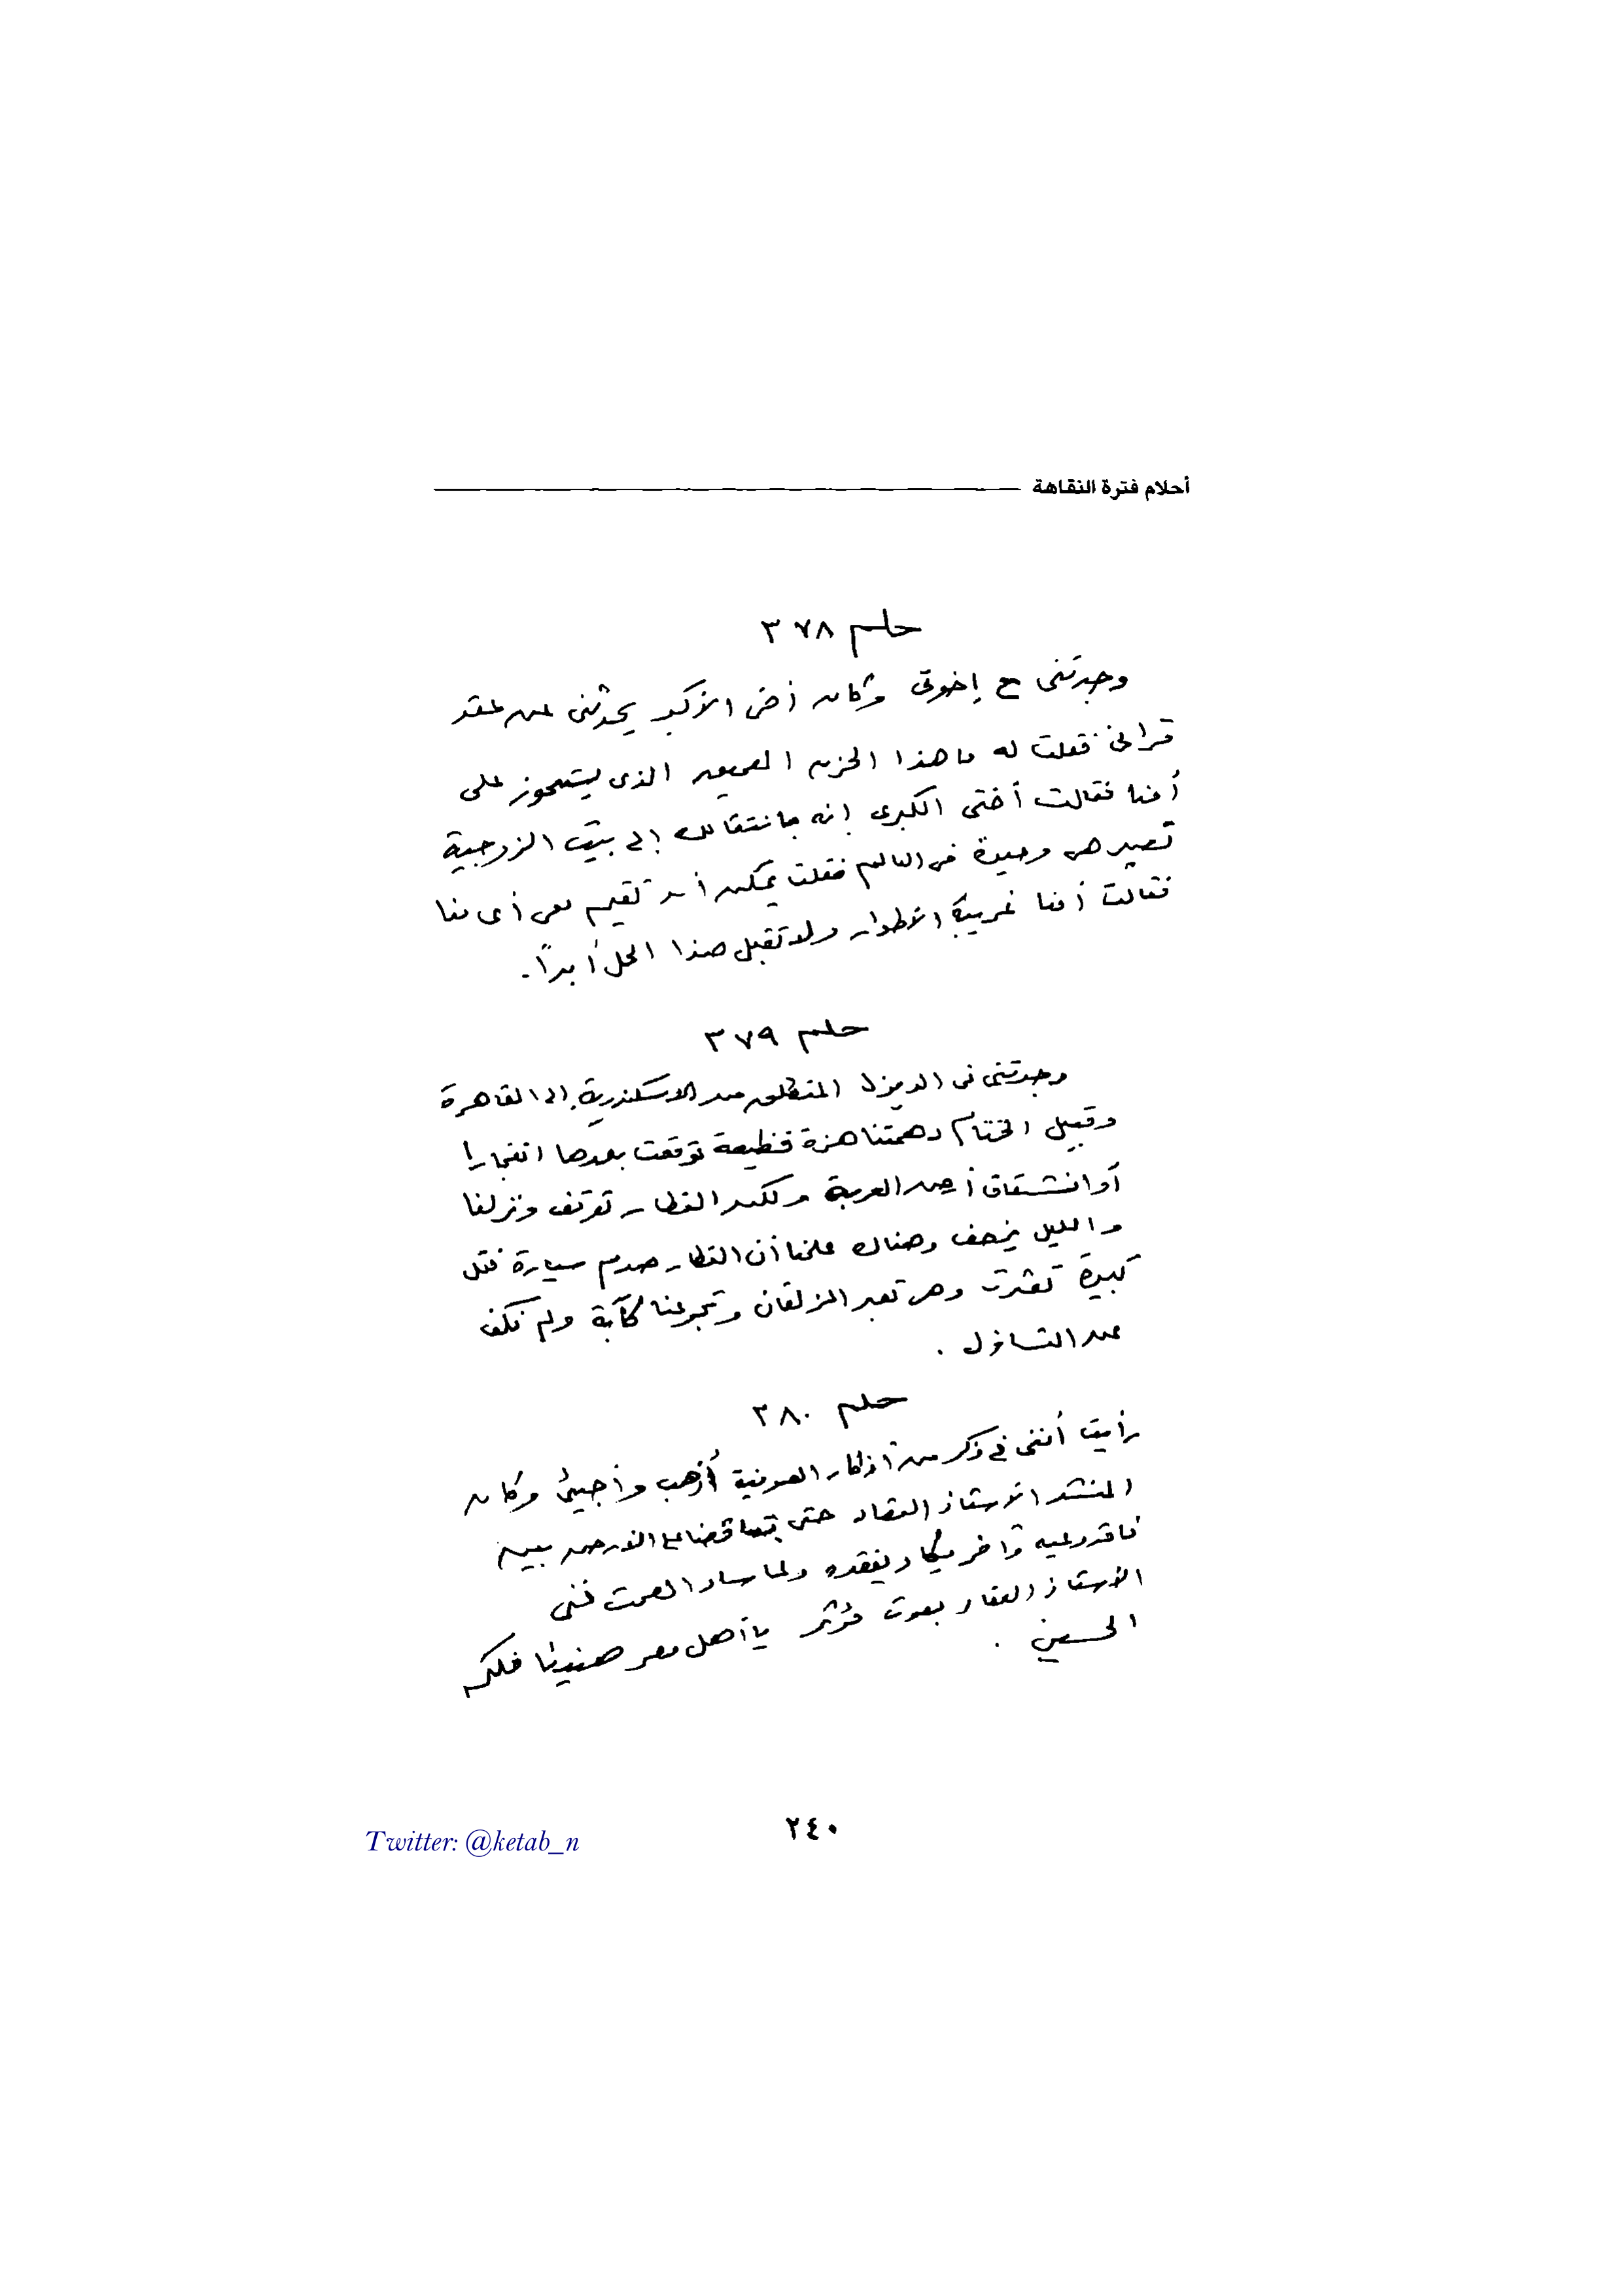 أحلام فترة النقاهة
حلم ٣٧٨
وجدتنى مع إخوتى وكان أخى الأكبر يحدثنى عن عقد
قرانى فقلت له ما هذا الحزن العميق الذى يستحوز على
أمنا فقالت أختى الكبرى إنه بانتقالك إلى بيت الزوجية
تصير هى وحيدة فى العالم فقلت يمكن أن تقيم مع أى منا
فقالت أمنا غريبة الأطوار ولا تقبل هذا الحل أبداً.
حلم ٣٧٩
وجدتنى فى الديزل المنطلق من الاسكندرية إلى القاهرة
وقبيل الختام دهمتنا هزة فظيعة توقعت بعدها انفجارا
أو انشقاق أرض العربة ولكن القطار توقف ونزلنا
والليل يزحف وهناك علمنا أن القطار صدم سيارة نقل
كبيرة تعثرت وهى تعبر المزلقان وتجرعنا كآبة ولم نكف
عن التساؤل .
حلم ٣٨٠
رأيت أننى فى ذكر من أذكار الصوفية أذهب وأجيئ وكان
المنشد الأستاذ العقاد حتى تساقطنا على الأرض بين
فاقد وعيه وآخر يكاد يفقده ولما ساد الصمت غنى
الأستاذ العقاد بصوت مؤثر يا أهل مصر هنيئا فلكم
الحسين .
٢٤٠
Twitter: @ketab_n